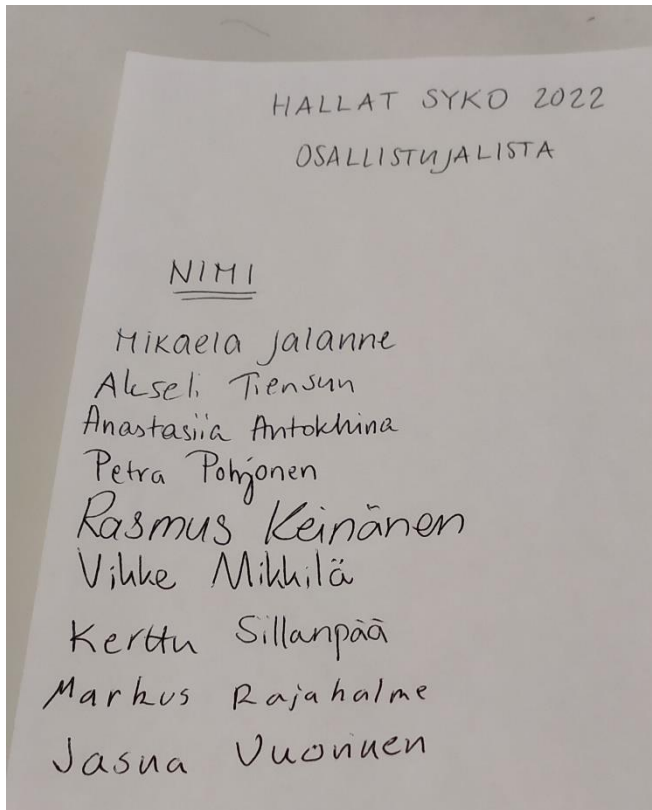 HALLAT SYKO 2022
OSALLISTUJALISTA
NIMI
Mikaela Jalanne
Akseli Tiensuu
Anastasiia Antokhina
Petra Pohjonen
Rasmus Keinänen
Vihke Mikkilä
Kerttu Sillanpää
Markus Rajahalme
Jasna Vuorinen